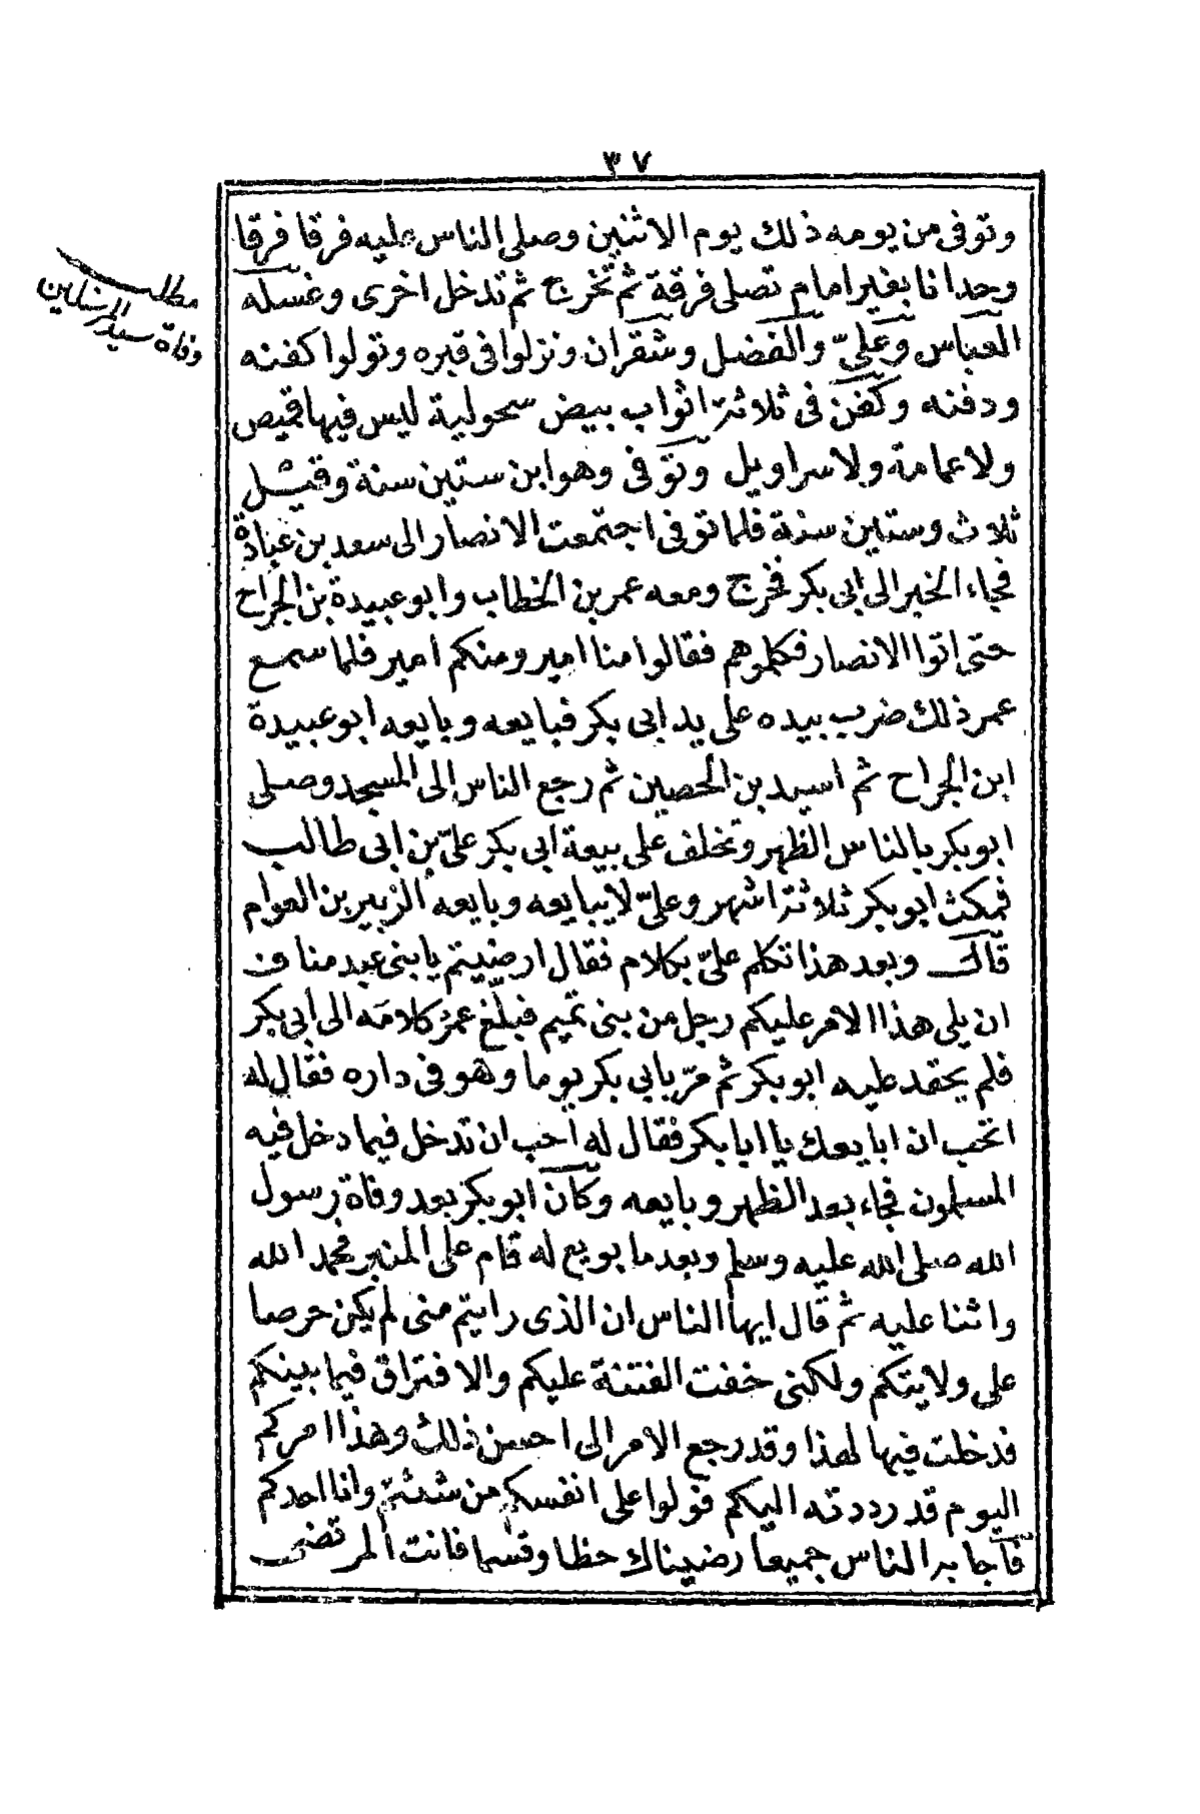 ٣٧
وتوفى من يومه ذلك يوم الاثنين وصلى الناس عليه فرقا فرقا
وحدانا بغير امام تصلى فرقة ثم تخرج ثم تدخل اخرى وغسله
العباس وعلىّ والفضل وشقران ونزلوا فى قبره وتولوا كفنه
ودفنه وكفن فى ثلاثة اثواب بيض سحولية ليس فيها قميص
ولا عمامة ولا سراويل وتوفى وهو ابن ستين سنة وقيل
ثلاث وستين سنة فلما توفى اجتمعت الانصار الى سعد بن عبادة
فجاء الخبر الى ابى بكر فخرج ومعه عمر بن الخطاب وابو عبيدة بن الجراح
حتى اتوا الانصار فكلموهم فقالوا منا امير ومنكم امير فلما سمع
عمر ذلك ضرب بيده على يد ابى بكر فبايعه وبايعه ابو عبيدة
ابن الجراح ثم اسيد بن الحصين ثم رجع الناس الى المسجد وصلى
ابو بكر بالناس الظهر وتخلف على بيعة ابى بكر علىّ بن ابى طالب
فمكث ابو بكر ثلاثة اشهر وعلىّ لا يبايعه وبايعه الزبير بن العوام
قال وبعد هذا تكلم علىّ بكلام فقال ارضيتم يا بنى عبد مناف
ان يلى هذا الامر عليكم رجل من بنى تميم فبلغ عمرُ كلامَه الى ابى بكر
فلم يحقد عليه ابو بكر ثم مرّ بابي بكر يوما وهو فى داره فقال له
اتحب ان ابايعك يا ابا بكر فقال له احب ان تدخل فيما دخل فيه
المسلمون فجاء بعد الظهر وبايعه وكان ابو بكر بعد وفاة رسول
الله صلى الله عليه وسلم وبعد ما بويع له قام على المنبر فحمد الله
واثنا عليه ثم قال ايها الناس ان الذى رايتم منى لم يكن حرصا
على ولايتكم ولكنى خفت الفتنة عليكم والافتراق فيما بينكم
فدخلت فيها لهذا وقد رجع الامر الى احسن ذلك وهذا امركم
اليوم قد رددته اليكم فولوا على انفسكم من شئتم وانا احدكم
فاجابه الناس جميعا رضيناك حظا وقسما فانت المرتضى
مطلب
وفاة سيد المرسلين